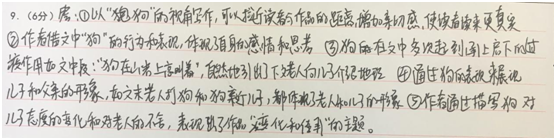 9. (6分) 答:①以"猎狗"的视角写作,可以拉近读者与作品的距离,增加亲切感,使读者读来更真实
②作者借文中"狗"的行为和表现,体现了自身的感情和思考 ③狗在文中多次起到承上启下的过
渡作用如文中段:"狗在山米上高叫着",自然地引出下文老人向儿子介绍地理 ④通过狗的表现来展现
儿子和父亲的形象,如文末老人对狗和狗亲近儿子,都体现了老人和儿子的形象 ⑤作者通过描写狗对
儿子态度的变化和对老人的不舍,表现出了作品"变化和传承"的主题。